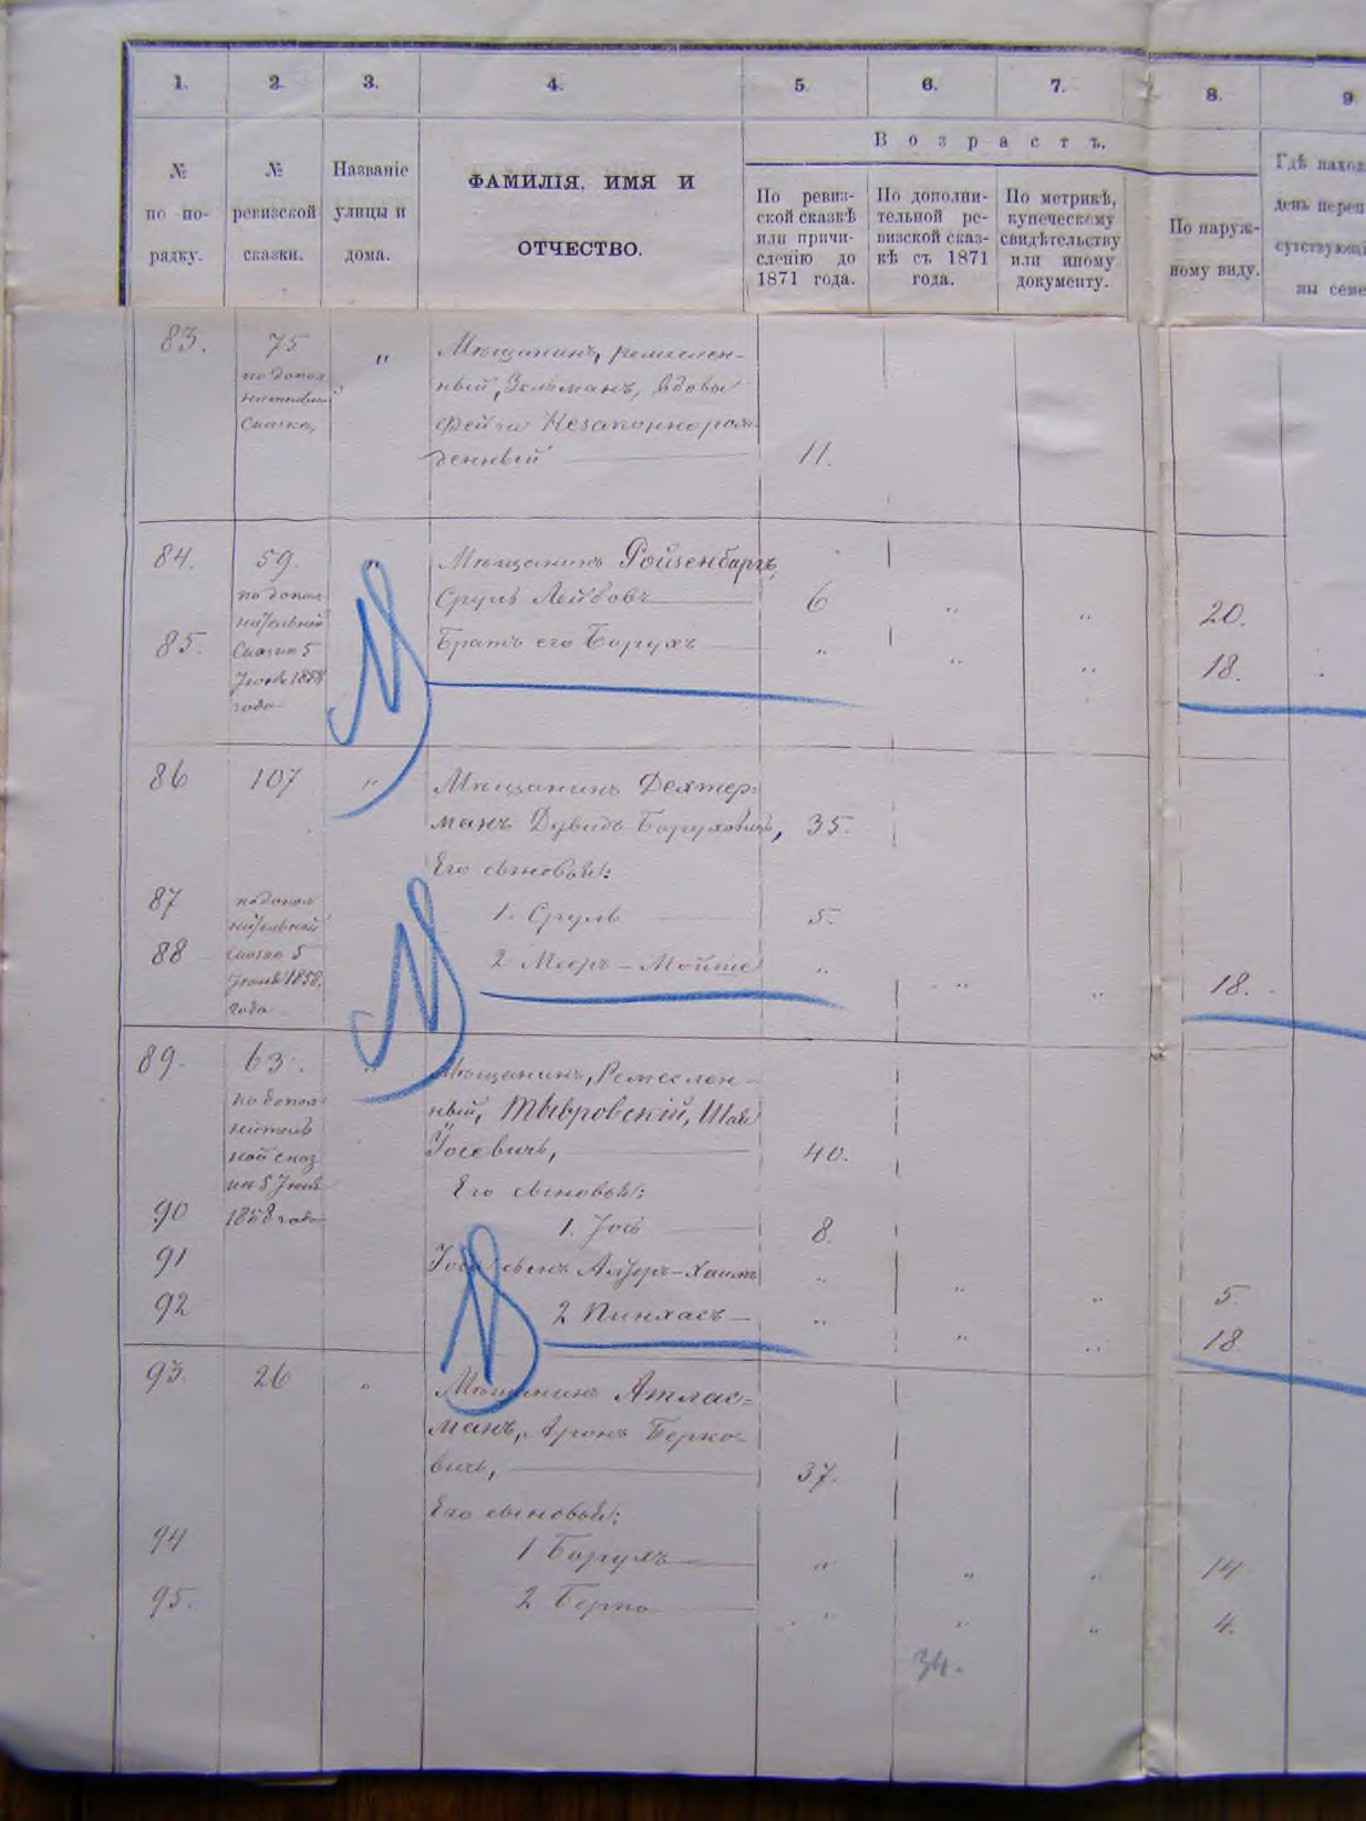 1. 2. 3. 4. 5. 6. 7. 8. 9
№ по по-рядку.
№ ревизской сказки.
Названіе улицы и дома.
ФАМИЛІЯ, ИМЯ И
ОТЧЕСТВО.
Возрастъ.
По ревиз-
ской сказкѣ
или причи-
сленію до
1871 года.
По дополни-
тельной ре-
визской сказ-
кѣ съ 1871
года.
По метрикѣ,
купеческому
свидѣтельству
или иному
документу.
По наруж-
ному виду.
Гдѣ наход
день переп
сутствующі
ны семе
83. 75 "
по допол
нительной
сказкѣ,
Мѣщанинъ, ремеслен-
ный, Зельманъ, вдовы
Фейги Незаконнорож-
денный 11.
84. 59. "
по допол
нительной
Сказкѣ 5
Іюня 1858
года
Мѣщанинъ Ройзенбергъ
Сруль Лейбовъ 6 " " 20.
85. Братъ его Борухъ " " " 18.
86 107 "
Мѣщанинъ Дехтер-
манъ Дувидъ Боруховичъ, 35.
Его сыновья:
87 по допол
нительной
сказкѣ 5
Іюня 1858.
года
1. Сруль 5.
88 2 Мееръ-Мойше " " " 18.
89. 63. "
по допол
нитель
ной сказ
кѣ 5 Іюня
1858 года
Мѣщанинъ, Ремеслен-
ный, Тывровскій, Шая
Іосевичъ, 40.
Его сыновья:
90 1. Іось 8.
91 Іося сынъ Алзеръ-Хаимъ " " " 5
92 2 Пинхасъ " " " 18
93. 26 "
Мѣщанинъ Атлас-
манъ, Аронъ Берко-
вичъ, 37.
Его сыновья:
94 1 Борухъ " " " 14
95. 2 Берко " " " 4.
34.